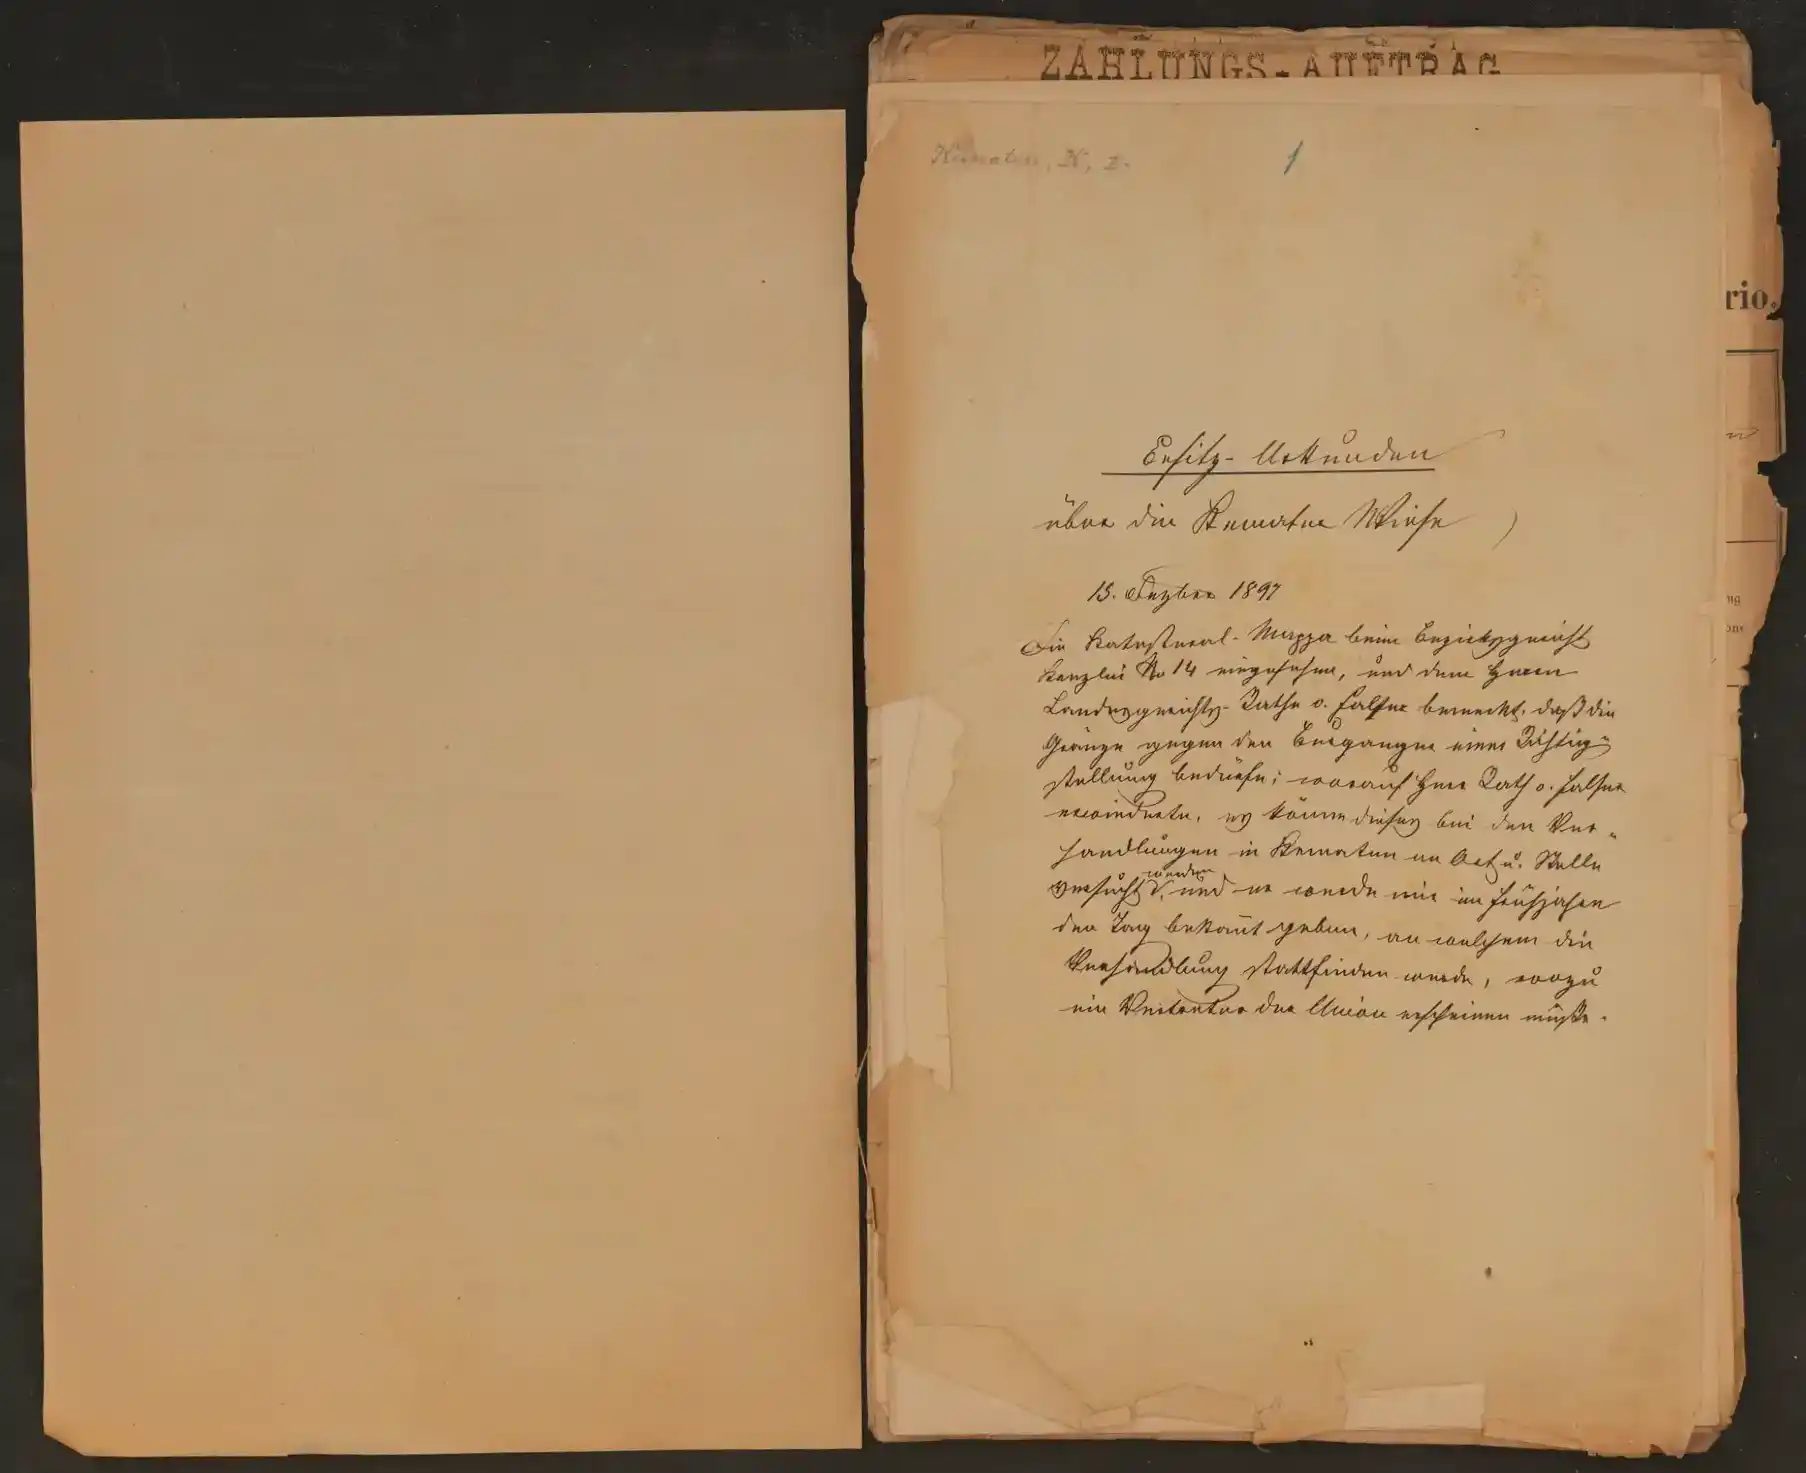 ZAHLUNGS-AUFTRAG
Kematen, K, I.
1
rio.
Besitz-Urkunden
über die Kemater Wiese
13. Dezber 1897
Die Katastral-Mappa beim Bezirksgericht
Kanzlei No 14 eingesehen, und dem Herrn
Landesgerichts-Rathe v. Falser bemerkt, daß die
Gränze gegen den Burganger einer Richtig-
stellung bedürfe; worauf Herr Rath v. Falser
erwiederte, es könne dieses bei den Ver-
handlungen in Kematen an Ort u. Stelle
versucht werden, und er werde mir im Frühjahre
den Tag bekannt geben, an welchem die
Verhandlung stattfinden werde, wozu
ein Vertreter der Union erscheinen müßte.